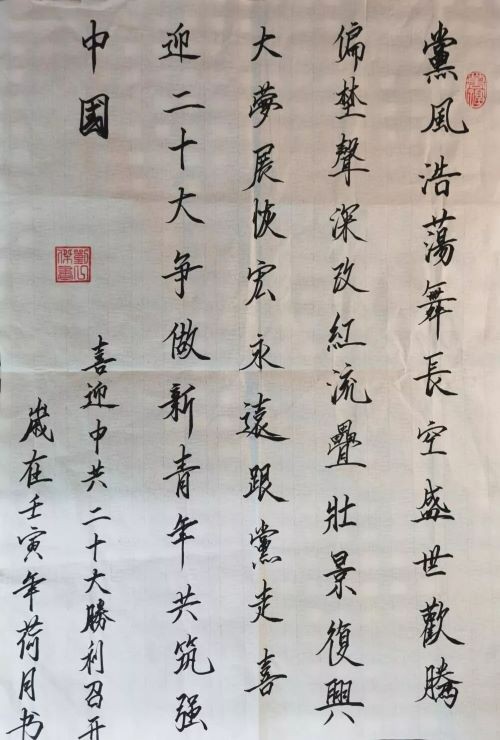 黨風浩蕩舞長空盛世歡騰
偏埜聲深改紅流疊壯景復興
大夢展恢宏永遠跟黨走喜
迎二十大争做新青年共筑强
中國
喜迎中共二十大勝利召开
歲在壬寅年荷月书